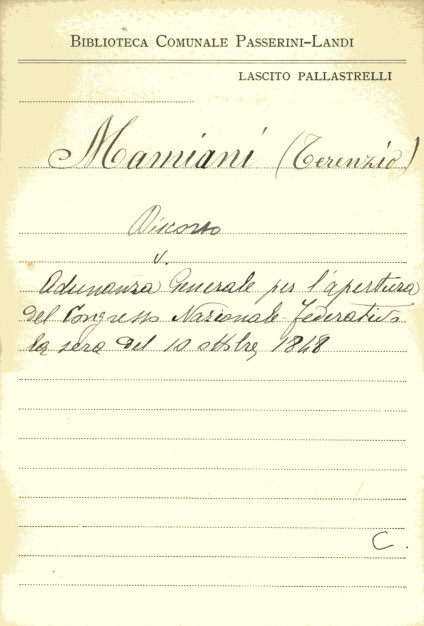 BIBLIOTECA COMUNALE PASSERINI-LANDI
LASCITO PALLASTRELLI
Mamiani (Terenzio)
Discorso
v.
Adunanza Generale per l'apertura
del Congresso Nazionale Federativo
la sera del 10 ottobre 1848
C.